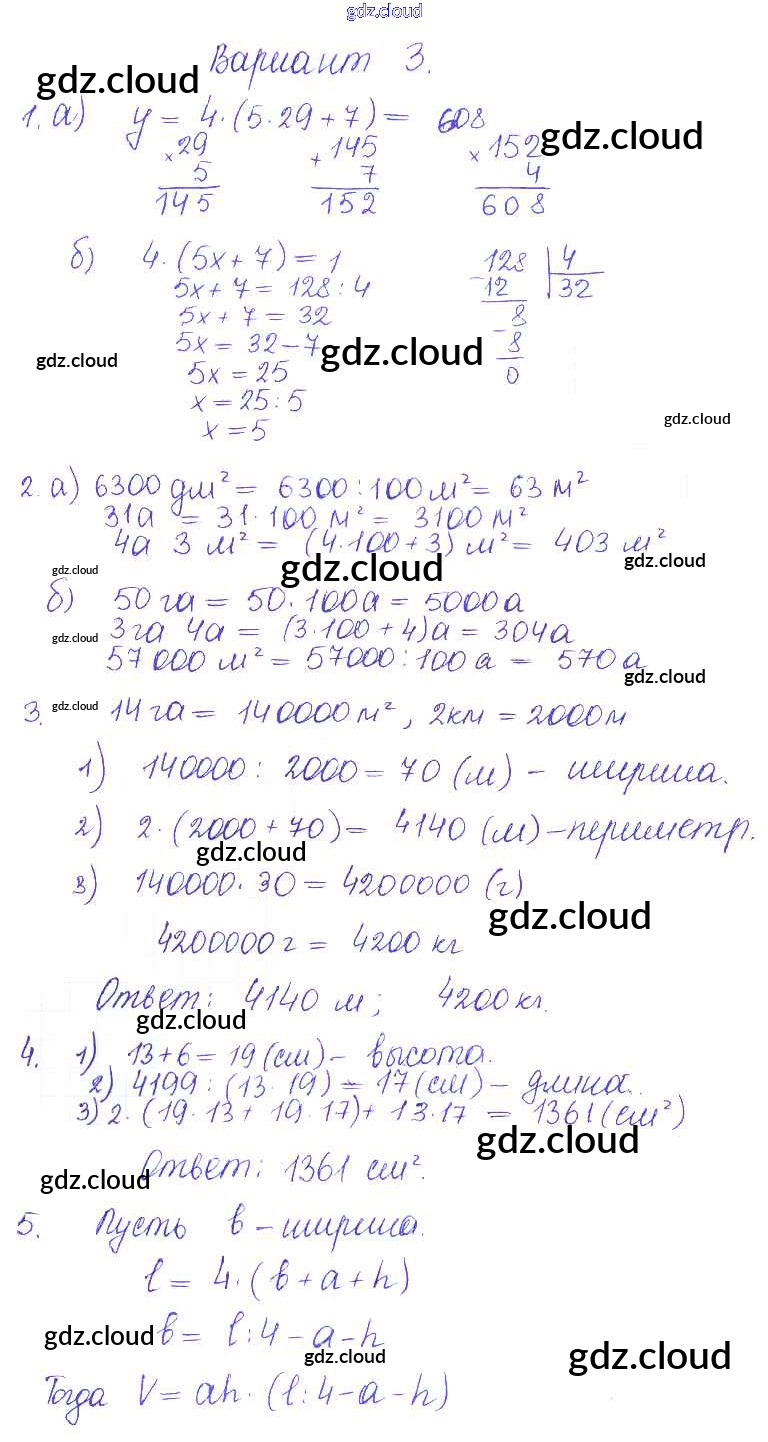 gdz.cloud
Вариант 3.
gdz.cloud
1. а) y = 4·(5·29+7) = 608
gdz.cloud
× 29 + 145 × 152
5 7 4
145 152 608
б) 4·(5x+7) = 1 128 | 4
5x + 7 = 128 : 4 - 12 32
5x + 7 = 32 8
5x = 32 - 7 - 8
gdz.cloud
gdz.cloud
5x = 25 0
x = 25 : 5
gdz.cloud
x = 5
2. а) 6300 дм² = 6300 : 100 м² = 63 м²
31а = 31·100 м² = 3100 м²
4а 3 м² = (4·100+3) м² = 403 м²
gdz.cloud
gdz.cloud
gdz.cloud
б) 50 га = 50·100а = 5000а
3га 4а = (3·100+4)а = 304а
gdz.cloud
57 000 м² = 57000 : 100 а = 570 а
gdz.cloud
3. gdz.cloud 14 га = 140000 м², 2км = 2000м
1) 140000 : 2000 = 70 (м) - ширина.
2) 2·(2000+70) = 4140 (м) - периметр.
gdz.cloud
3) 140000·30 = 4200000 (г)
gdz.cloud
4200000 г = 4200 кг
Ответ: 4140 м; 4200 кг.
gdz.cloud
4. 1) 13+6 = 19 (см) - высота.
2) 4199 : (13·19) = 17 (см) - длина.
3) 2·(19·13 + 19·17) + 13·17 = 1361 (см²)
gdz.cloud
Ответ: 1361 см².
gdz.cloud
5. Пусть b - ширина.
l = 4·(b+a+h)
gdz.cloud b = l:4 - a - h
gdz.cloud
gdz.cloud
Тогда V = ah·(l:4 - a - h)